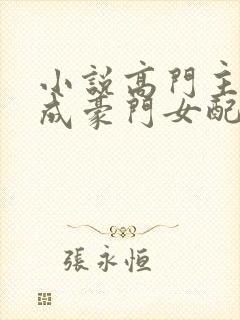 小說高門主
成豪門女配
張永恒